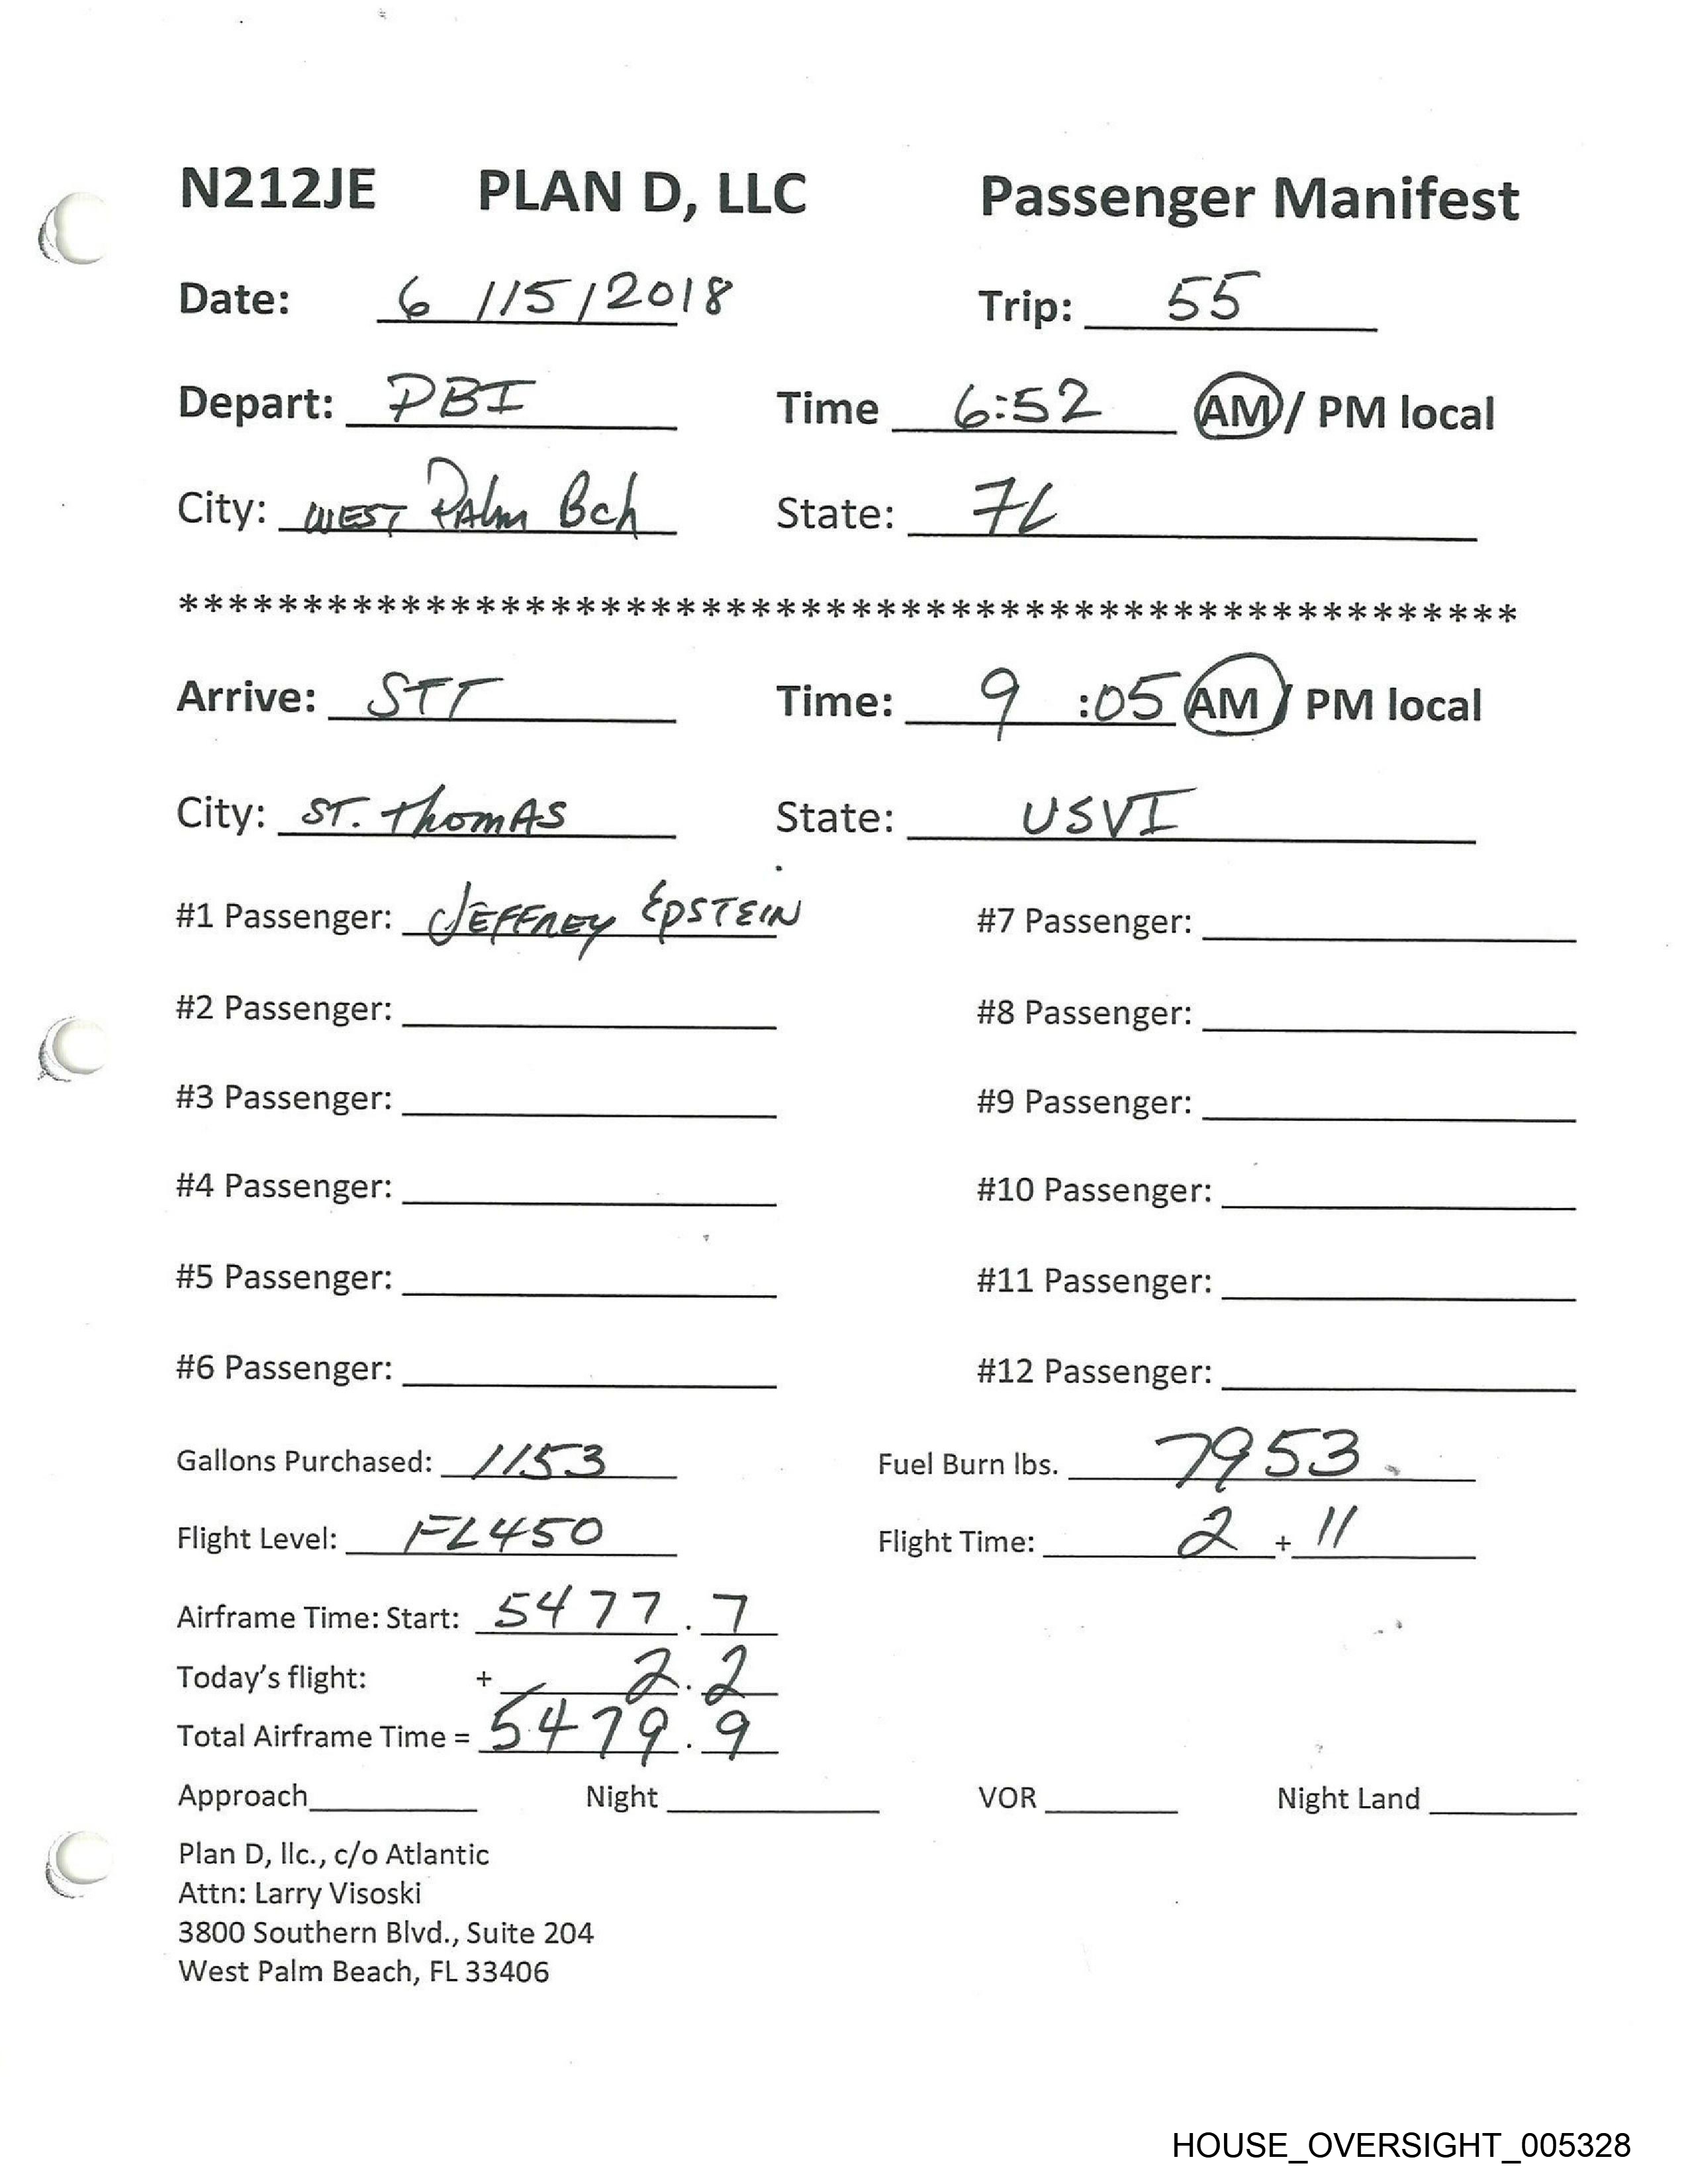 N212JE PLAN D, LLC Passenger Manifest
Date: 6 /15/2018 Trip: 55
Depart: PBI Time 6:52 AM/ PM local
City: WEST PAlm Bch State: FL
******************************************************
Arrive: STT Time: 9 :05 AM / PM local
City: ST. thomAS State: USVI
#1 Passenger: JEFFREY EPSTEIN #7 Passenger:
#2 Passenger: #8 Passenger:
#3 Passenger: #9 Passenger:
#4 Passenger: #10 Passenger:
#5 Passenger: #11 Passenger:
#6 Passenger: #12 Passenger:
Gallons Purchased: 1153 Fuel Burn lbs. 7953
Flight Level: FL450 Flight Time: 2 + 11
Airframe Time: Start: 5477.7
Today's flight: + 2.2
Total Airframe Time = 5479.9
Approach Night VOR Night Land
Plan D, llc., c/o Atlantic
Attn: Larry Visoski
3800 Southern Blvd., Suite 204
West Palm Beach, FL 33406
HOUSE_OVERSIGHT_005328